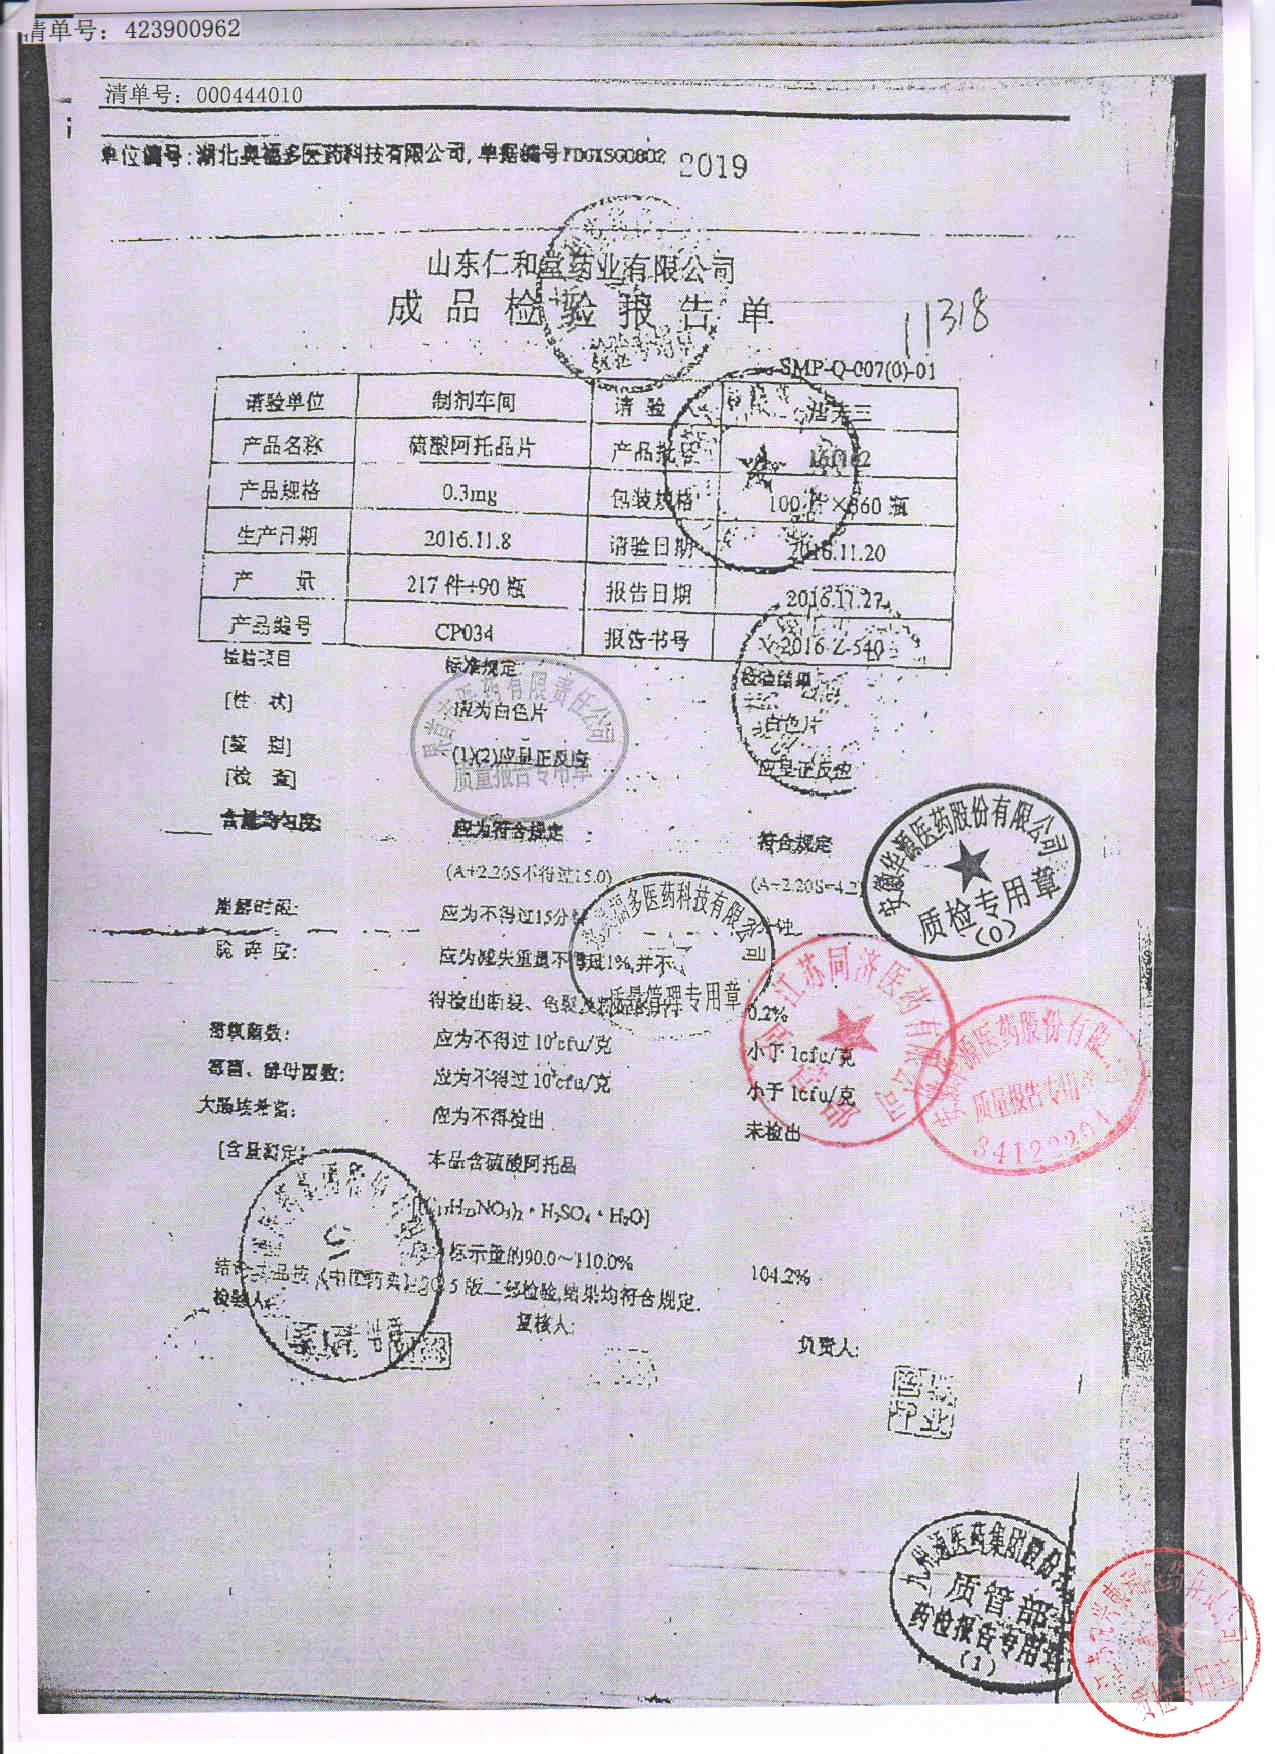 清单号：423900962
清单号：000444010
单位编号:湖北奥福多医药科技有限公司,单据编号
2019
山东仁和堂药业有限公司
成品检验报告单
11318
SMP-Q-007(0)-01
请验单位 制剂车间 请验
产品名称 硫酸阿托品片 产品批号
产品规格 0.3mg 包装规格 100片×360瓶
生产日期 2016.11.8 请验日期 2016.11.20
产 量 217件+90瓶 报告日期 2016.11.27
产品编号 CP034 报告书号 2016-Z-540
检验项目 标准规定 检验结果
[性 状] 应为白色片 白色片
[鉴 别] (1)(2)应呈正反应 应呈正反应
[检 查]
含量均匀度: 应为符合规定 符合规定
(A+2.20S不得过15.0) (A+2.20S=4.2
崩解时限: 应为不得过15分钟
脆碎度: 应为减失重量不得过1%,并不
得检出断裂、龟裂及 0.2%
需氧菌数: 应为不得过10³cfu/克 小于1cfu/克
霉菌、酵母菌数: 应为不得过10²cfu/克 小于1cfu/克
大肠埃希菌: 应为不得检出 未检出
[含量测定] 本品含硫酸阿托品
H₂₃NO₃)₂·H₂SO₄·H₂O]
标示量的90.0～110.0% 104.2%
结论:本品按《中国药典》2015版二部检验,结果均符合规定.
检验人: 复核人: 负责人:
医药有限责任公司
质量报告专用章
安徽华源医药股份有限公司
质检专用章
(0)
福多医药科技有限公司
质量管理专用章
江苏同济医药有限公司
质管部
安徽华源医药股份有限公司
质量报告专用章
34122201
九州通医药集团股份有
质管部
药检报告专用章
(1)
质检专用章